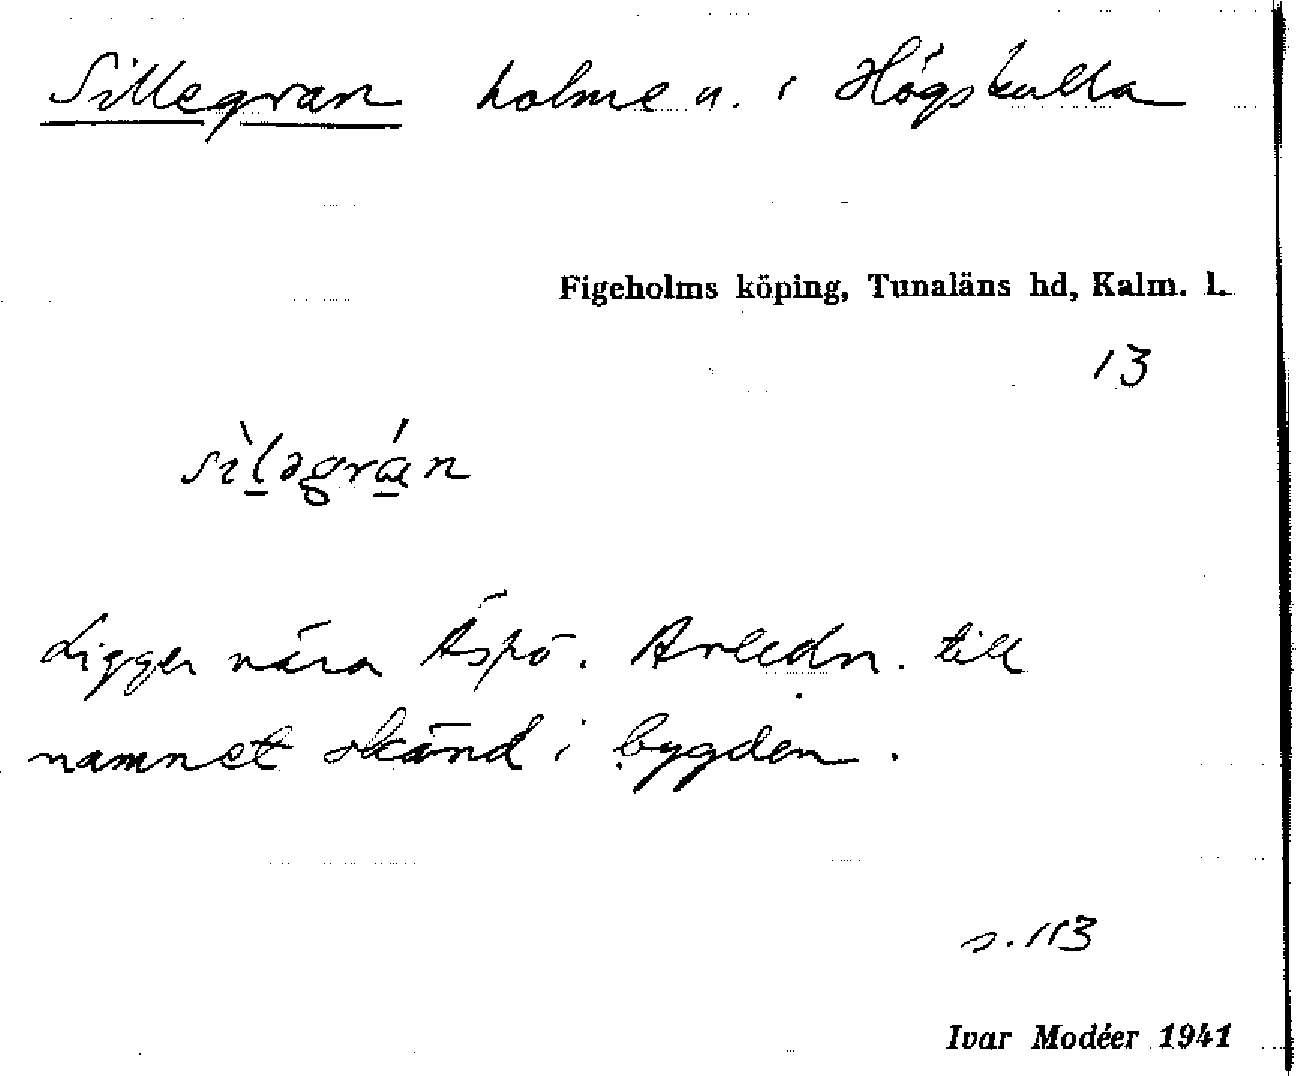 Sillegran holme n. i Högskulla
Figeholms köping, Tunaläns hd, Kalm. l.
13
sìləgrán
Ligger nära Äspö. Anledn. till
namnet okänd i bygden.
s. 113
Ivar Modéer 1941